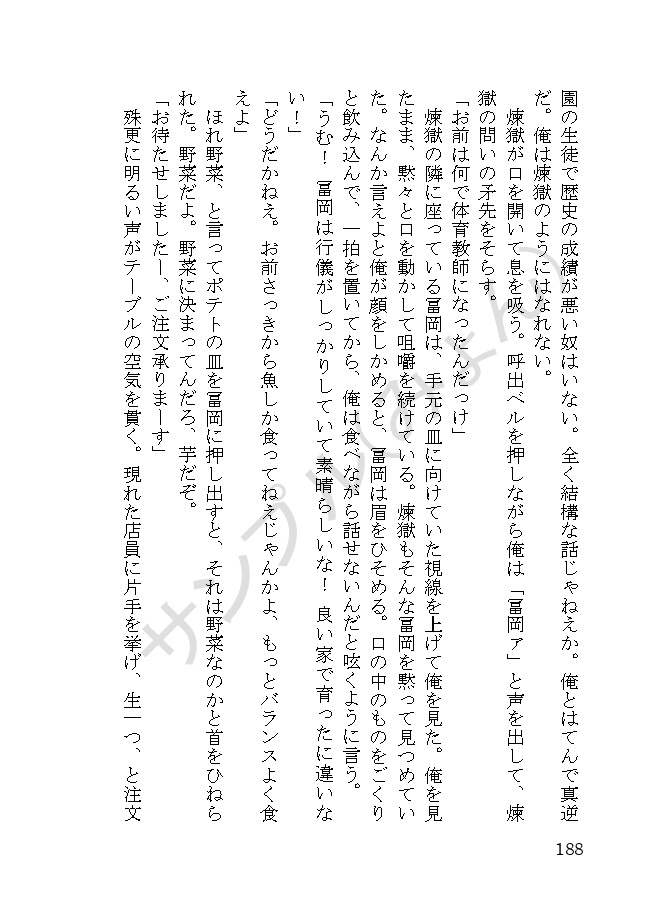 園の生徒で歴史の成績が悪い奴はいない。全く結構な話じゃねえか。俺とはてんで真逆
だ。俺は煉獄のようにはなれない。
煉獄が口を開いて息を吸う。呼出ベルを押しながら俺は「冨岡ァ」と声を出して、煉
獄の問いの矛先をそらす。
「お前は何で体育教師になったんだっけ」
煉獄の隣に座っている冨岡は、手元の皿に向けていた視線を上げて俺を見た。俺を見
たまま、黙々と口を動かして咀嚼を続けている。煉獄もそんな冨岡を黙って見つめてい
た。なんか言えよと俺が顔をしかめると、冨岡は眉をひそめる。口の中のものをごくり
と飲み込んで、一拍を置いてから、俺は食べながら話せないんだと呟くように言う。
「うむ！　冨岡は行儀がしっかりしていて素晴らしいな！　良い家で育ったに違いな
い！」
「どうだかねえ。お前さっきから魚しか食ってねえじゃんかよ、もっとバランスよく食
えよ」
ほれ野菜、と言ってポテトの皿を冨岡に押し出すと、それは野菜なのかと首をひねら
れた。野菜だよ。野菜に決まってんだろ、芋だぞ。
「お待たせしましたー、ご注文承りまーす」
殊更に明るい声がテーブルの空気を貫く。現れた店員に片手を挙げ、生一つ、と注文
188